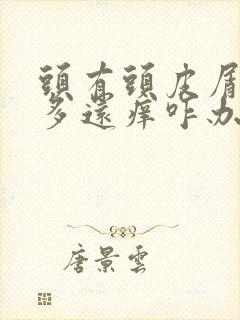 頭有頭皮屑
多還痒咋办
唐景雲